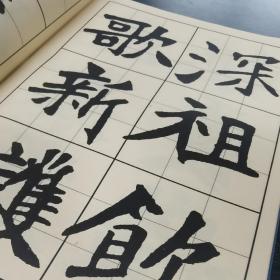 深祖飲
歌新護